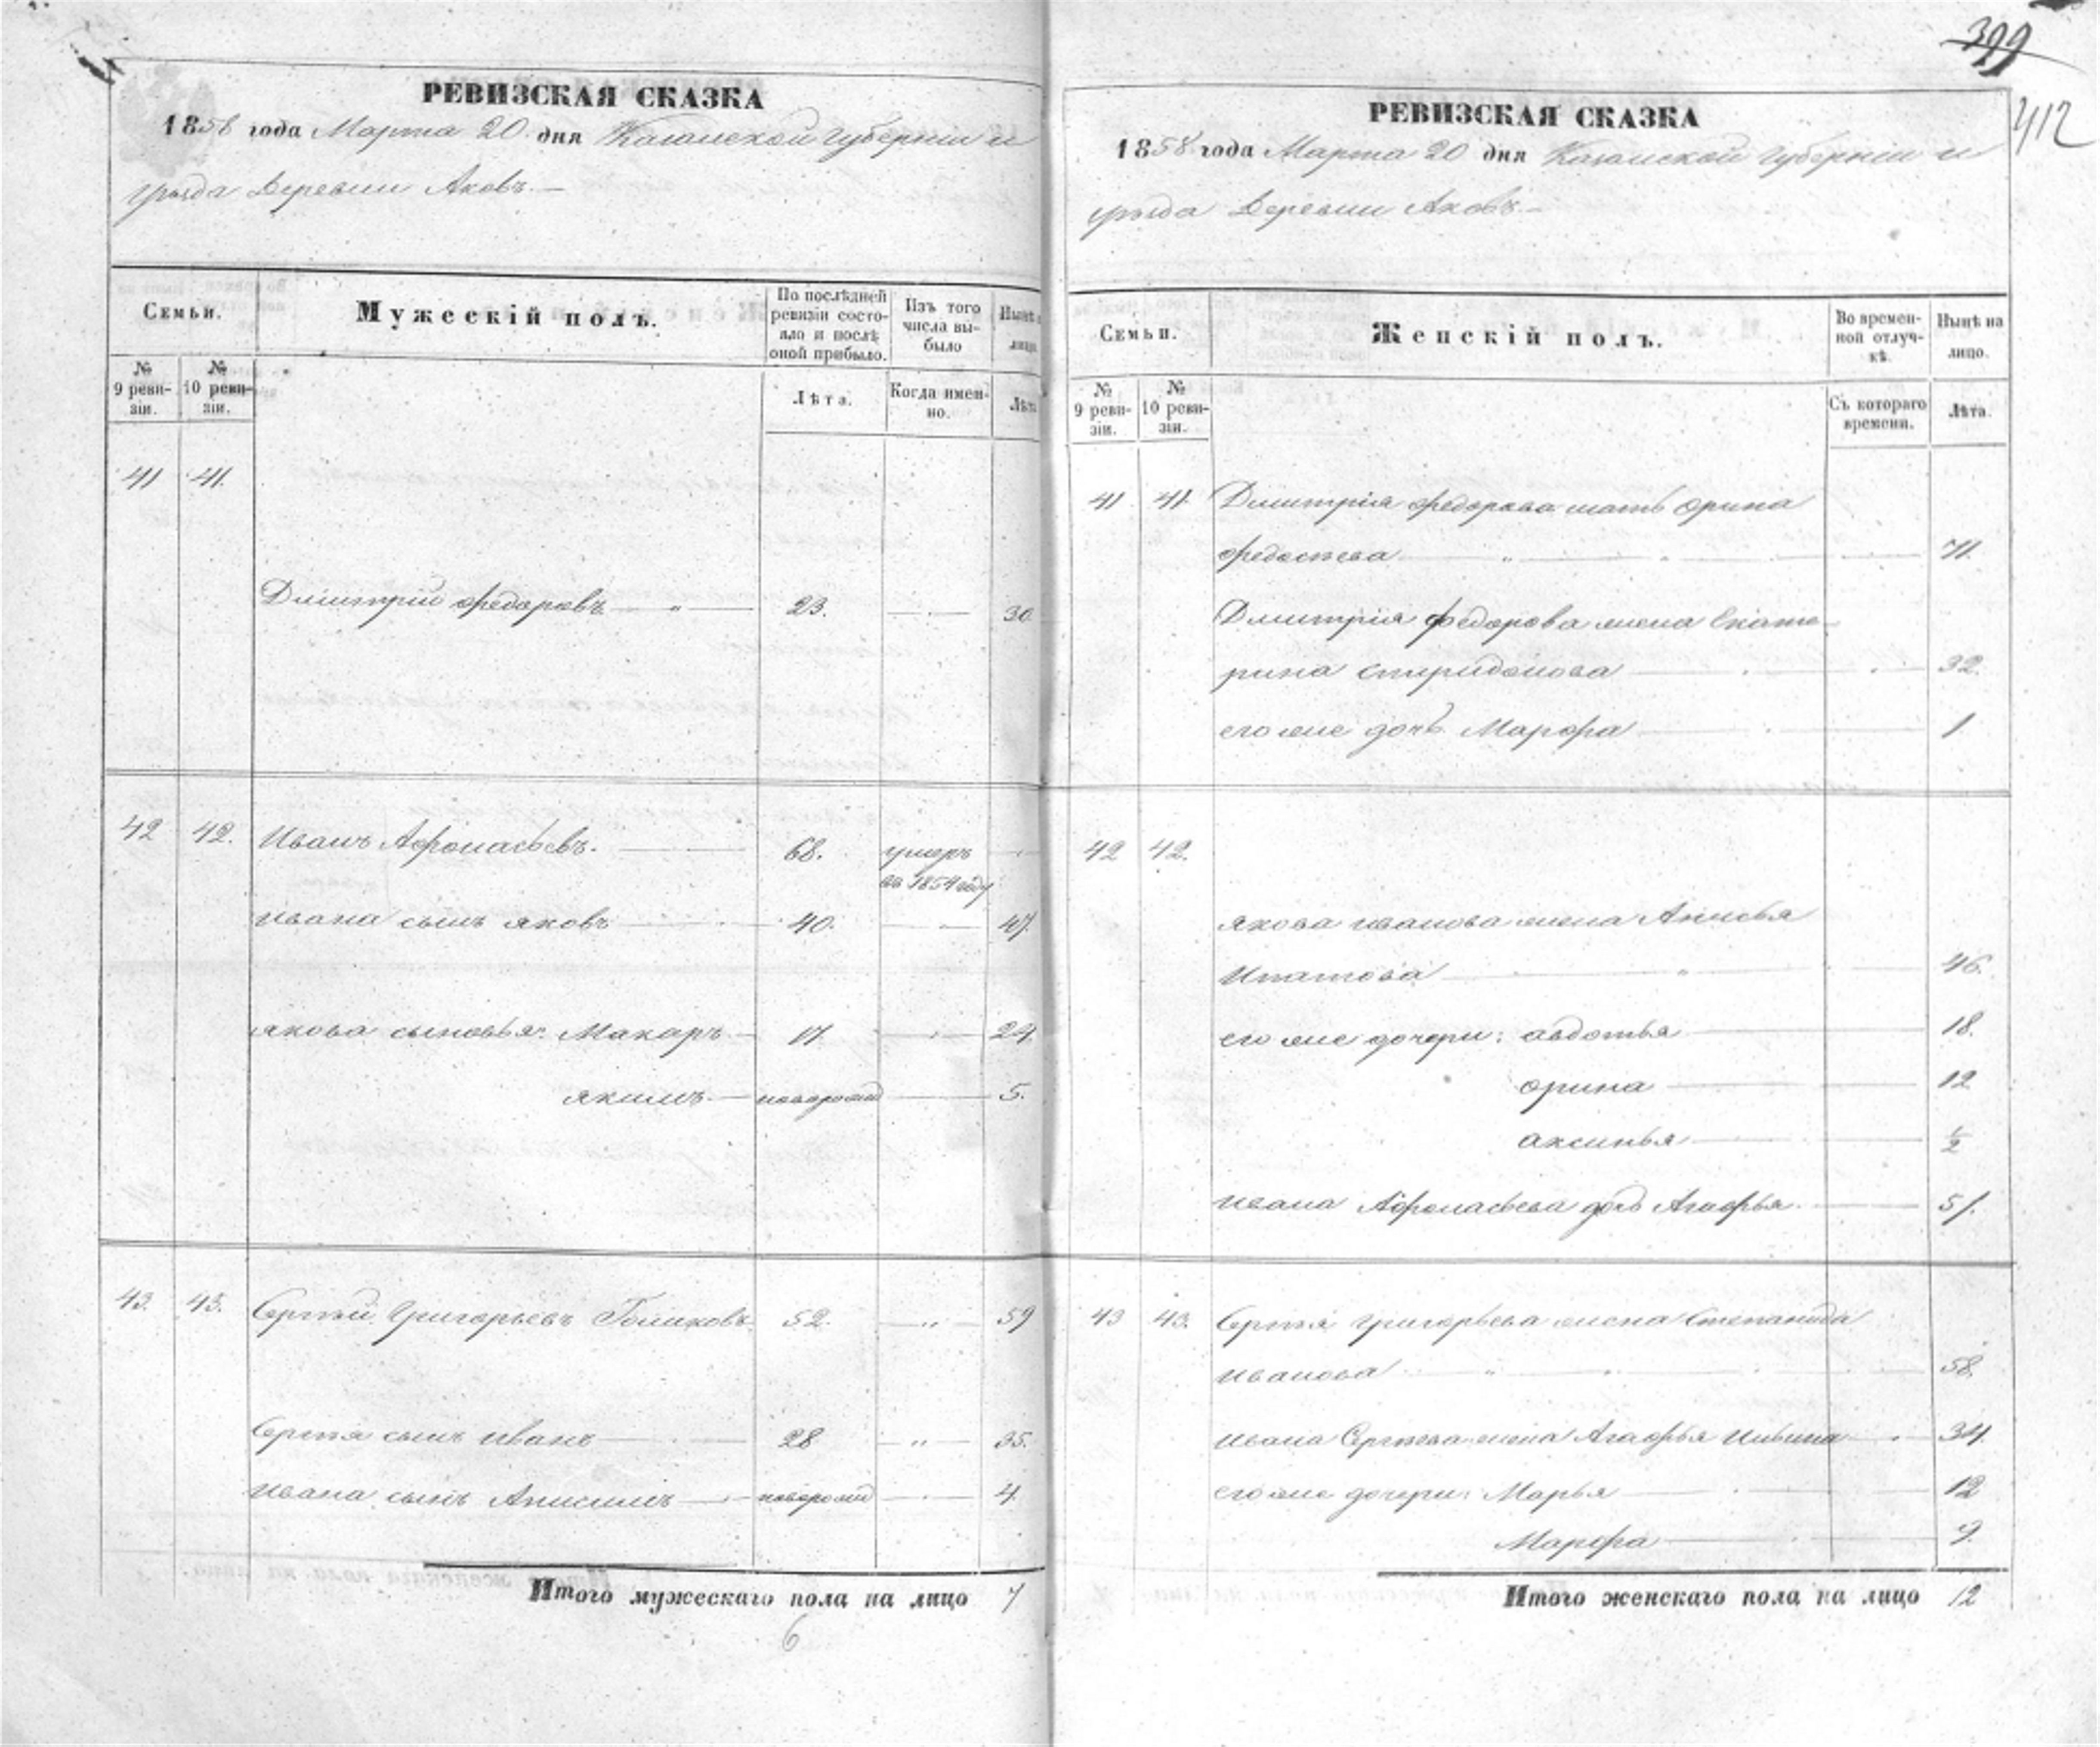 399
412
РЕВИЗСКАЯ СКАЗКА
1858 года Марта 20 дня Казанской Губерніи и
уѣзда Деревни Аковъ.
Семьи.
Мужескій полъ.
По послѣдней ревизіи состояло и послѣ оной прибыло.
Изъ того числа выбыло
Нынѣ лицо
№ 9 ревизіи.
№ 10 ревизіи.
Лѣта.
Когда именно.
Лѣта
41 41.
Дмитрій Федоровъ — „ — 23. — 30
42 42. Иванъ Афонасьевъ. — 68. умеръ
въ 1854 году
Ивана сынъ Яковъ 40. — 47
Якова сыновья: Макаръ — 17 — 24.
Якимъ — новорожд — 5.
43. 43. Сергѣй Григорьевъ 52. — „ — 59
Сергѣя сынъ Иванъ 28 — „ — 35.
Ивана сынъ Анисимъ — новорожд — 4.
Итого мужескаго пола на лицо 7
6
РЕВИЗСКАЯ СКАЗКА
1858 года Марта 20 дня Казанской Губерніи и
уѣзда Деревни Аковъ.
Семьи.
Женскій полъ.
Во временной отлучкѣ.
Нынѣ на лицо.
№ 9 ревизіи.
№ 10 ревизіи.
Съ котораго времени.
Лѣта.
41 41. Дмитрія Федорова мать Орина
71.
Дмитрія Федорова жена Екате-
рина Спиридонова — 32.
его же дочь Марфа — 1
42 42.
Якова Иванова жена Анисья
Ипатова — 46.
его же дочери: Авдотья — 18.
Орина — 12
Аксинья — ½
Ивана Афонасьева дочь Агафья. — 51.
43 43. Сергѣя Григорьева жена Степанида
Иванова — 58.
Ивана Сергѣева жена Агафья Ильина — 34.
его же дочери: Марья — 12
Марфа — 9.
Итого женскаго пола на лицо 12